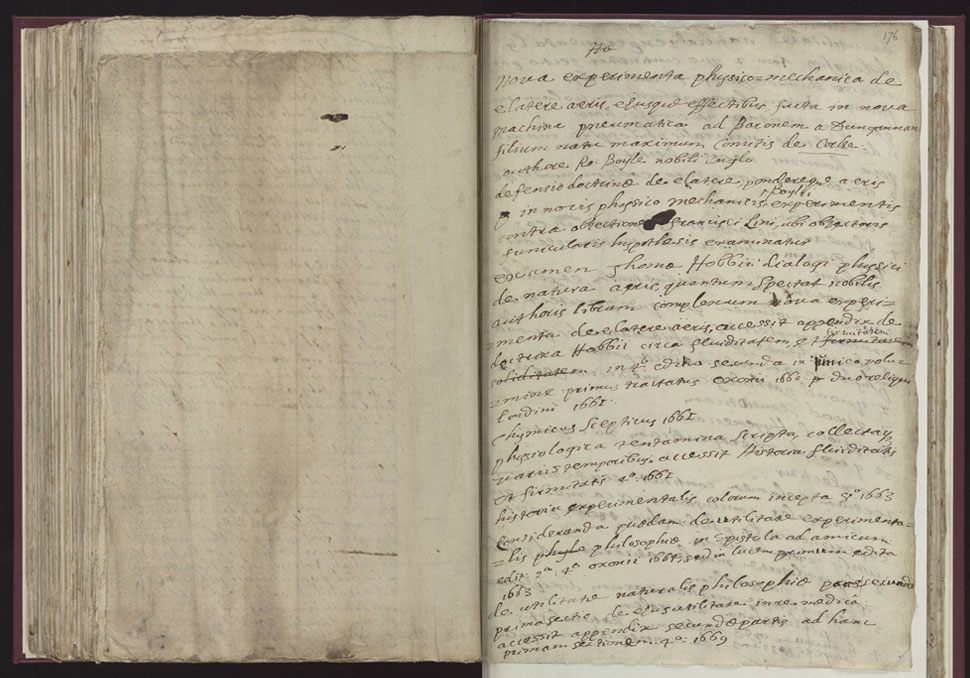 176
Nova experimenta physico=mechanica de
elatere aeris, ejusque effectibus facta in nova
machina pneumatica ad Baronem a Dungannan
filium natu maximum Comitis de Corke
authore Ro: Boyle nobili Anglo
defensio doctrinæ de elatere, pondereque aeris
in novis physico mechanicis Boyli experimentis
contra objectiones francisci Lini, ubi objectoris
funicularis hypothesis examinatur
examen Thomæ Hobbii dialogi physici
de natura aeris, quantum spectat nobilis
authoris librum complexum nova experi=
=menta de elatere aeris, accessit appendix de
doctrina Hobbii circa fluiditatem, et firmitatem
soliditatem in 4º editio secunda in unico volu=
=mine primus tractatus oxonii 1660 duo reliqui
londini 1661
Chymicus Scepticus 1661
physiologica tentamina scripta, collecta
variis temporibus. accessit Historia fluiditatis
et firmitatis 4º. 1661
historia experimentalis colorum incepta 1663
Consideranda quædam de utilitate experimenta=
=lis philosophiæ in epistola ad amicum
edit. 2ª 4º oxonii 1664, sed in lucem primum edita
1663
de utilitate naturalis philosophiæ pars secunda
prima sectio de ejus utilitate in re medica
accessit appendix secundæ partis ad hanc
primam sectionem 4º. 1669